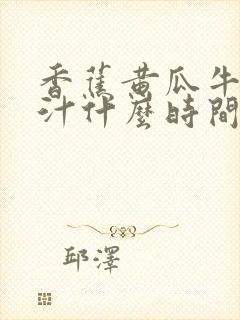 香蕉黄瓜牛
汁什麼時間
邱澤